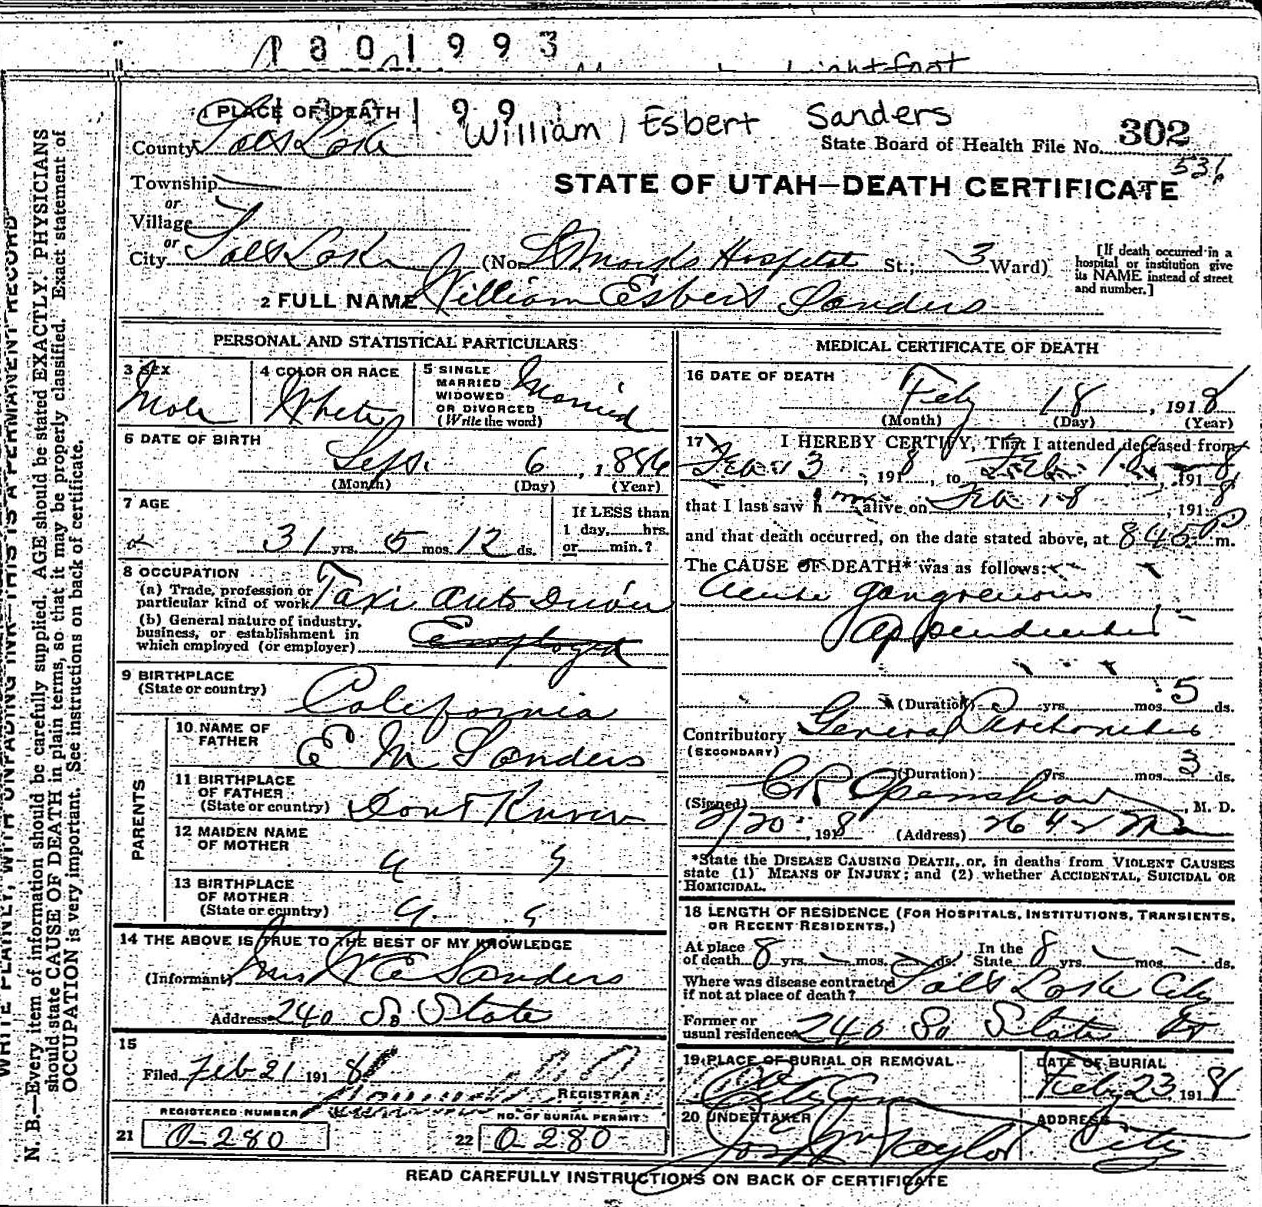 1801993
1 PLACE OF DEATH
William Esbert Sanders
County Salt Lake
State Board of Health File No. 302
536
Township
or
Village
STATE OF UTAH—DEATH CERTIFICATE
or
City Salt Lake (No. St Marks Hospital St.; 3 Ward)
[If death occurred in a hospital or institution give its NAME instead of street and number.]
2 FULL NAME William Esbert Sanders
PERSONAL AND STATISTICAL PARTICULARS
3 SEX Male
4 COLOR OR RACE White
5 SINGLE MARRIED WIDOWED OR DIVORCED (Write the word) Married
6 DATE OF BIRTH
Sept. 6, 1886
(Month) (Day) (Year)
7 AGE
31 yrs. 5 mos. 12 ds.
If LESS than 1 day, hrs. or min.?
8 OCCUPATION
(a) Trade, profession or particular kind of work Taxi Auto Driver
(b) General nature of industry, business, or establishment in which employed (or employer) Employed
9 BIRTHPLACE
(State or country) California
PARENTS
10 NAME OF FATHER E M Sanders
11 BIRTHPLACE OF FATHER (State or country) Dont Know
12 MAIDEN NAME OF MOTHER
13 BIRTHPLACE OF MOTHER (State or country)
14 THE ABOVE IS TRUE TO THE BEST OF MY KNOWLEDGE
(Informant) Mrs W E Sanders
Address 240 So State
15
Filed Feb 21 1918
REGISTRAR
REGISTERED NUMBER
NO. OF BURIAL PERMIT
21 0-280
22 0-280
MEDICAL CERTIFICATE OF DEATH
16 DATE OF DEATH
Feby 18, 1918
(Month) (Day) (Year)
17 I HEREBY CERTIFY, That I attended deceased from
Feb 13, 1918, to Feb. 18, 1918
that I last saw him alive on Feb 18, 1918
and that death occurred, on the date stated above, at 845 P m.
The CAUSE OF DEATH* was as follows:
Acute gangrenous
appendicitis
(Duration) yrs. mos. 5 ds.
Contributory General Peritonitis
(SECONDARY)
(Duration) yrs. mos. 3 ds.
(Signed) CR Openshaw, M. D.
2/20, 1918 (Address)
*State the DISEASE CAUSING DEATH, or, in deaths from VIOLENT CAUSES
state (1) MEANS OF INJURY; and (2) whether ACCIDENTAL, SUICIDAL OR
HOMICIDAL.
18 LENGTH OF RESIDENCE (FOR HOSPITALS, INSTITUTIONS, TRANSIENTS,
OR RECENT RESIDENTS.)
At place of death 8 yrs. mos. ds. In the State 8 yrs. mos. ds.
Where was disease contracted if not at place of death? Salt Lake City
Former or usual residence 240 So State St
19 PLACE OF BURIAL OR REMOVAL
City Cem
DATE OF BURIAL
Feby 23 1918
20 UNDERTAKER
Jos Wm Taylor
ADDRESS
City
READ CAREFULLY INSTRUCTIONS ON BACK OF CERTIFICATE
WRITE PLAINLY, WITH UNFADING INK—THIS IS A PERMANENT RECORD
N. B.—Every item of information should be carefully supplied. AGE should be stated EXACTLY. PHYSICIANS
should state CAUSE OF DEATH in plain terms, so that it may be properly classified. Exact statement of
OCCUPATION is very important. See instructions on back of certificate.